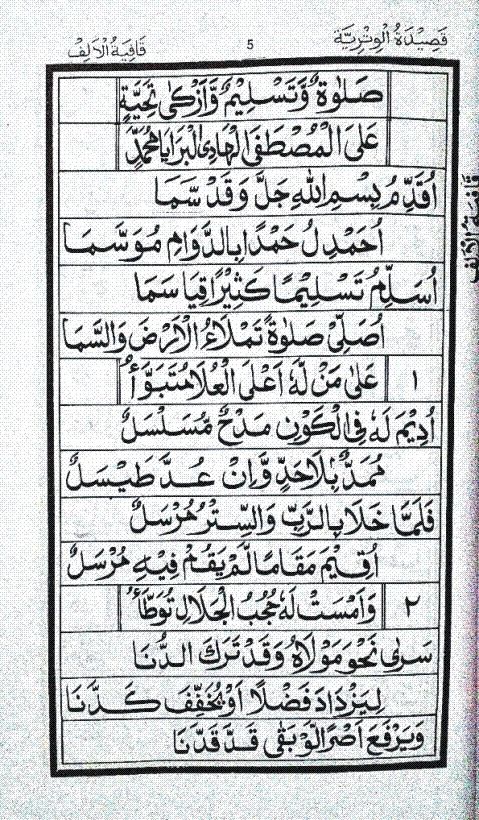 قَصِيْدَةُ الْوِتْرِيَّة
5
قَافِيَةُ الْاَلِفْ
صَلٰوةٌ وَّتَسْلِيْمٌ وَّاَزْكٰى تَحِيَّةٍ
عَلَى الْمُصْطَفَى الْهَادِى الْبَرَايَا مُحَمَّدٍ
اُقَدِّمُ بِسْمِ اللهِ جَلَّ وَقَدْ سَمَا
اُحَمْدِلُ حَمْدًا بِالدَّوَامِ مُوَسَّمَا
اُسَلِّمُ تَسْلِيْمًا كَثِيْرًا قِيَاسَمَا
اُصَلِّىْ صَلٰوةً تَمْلَاءُ الْاَرْضَ وَالسَّمَا
١ عَلٰى مَنْ لَهٗ اَعْلَى الْعُلَا مُتَبَوَّأُ
اُدِيْمَ لَهٗ فِى الْكَوْنِ مَدْحٌ مُسَلْسَلٌ
مُمَدٌّ بِلَا حَدٍّ وَّاِنْ عُدَّ طَيْسَلٌ
فَلَمَّا خَلَا بِالرَّبِّ وَالسِّتْرُ مُرْسَلٌ
اُقِيْمَ مَقَامًا لَّمْ يَقُمْ فِيْهِ مُرْسَلٌ
٢ وَاَمْسَتْ لَهٗ حُجُبُ الْجَلَالِ تُوَطَّأُ
سَرٰى نَحْوَ مَوْلَاهُ وَقَدْ تَرَكَ الدُّنَا
لِيَزْدَادَ فَضْلًا اَوْ يُخَفِّفَ كَدَّنَا
وَيَرْفَعَ اَصْرًا لَّوْ بَقٰى قَدَّ قَدَّنَا
قافية الالف